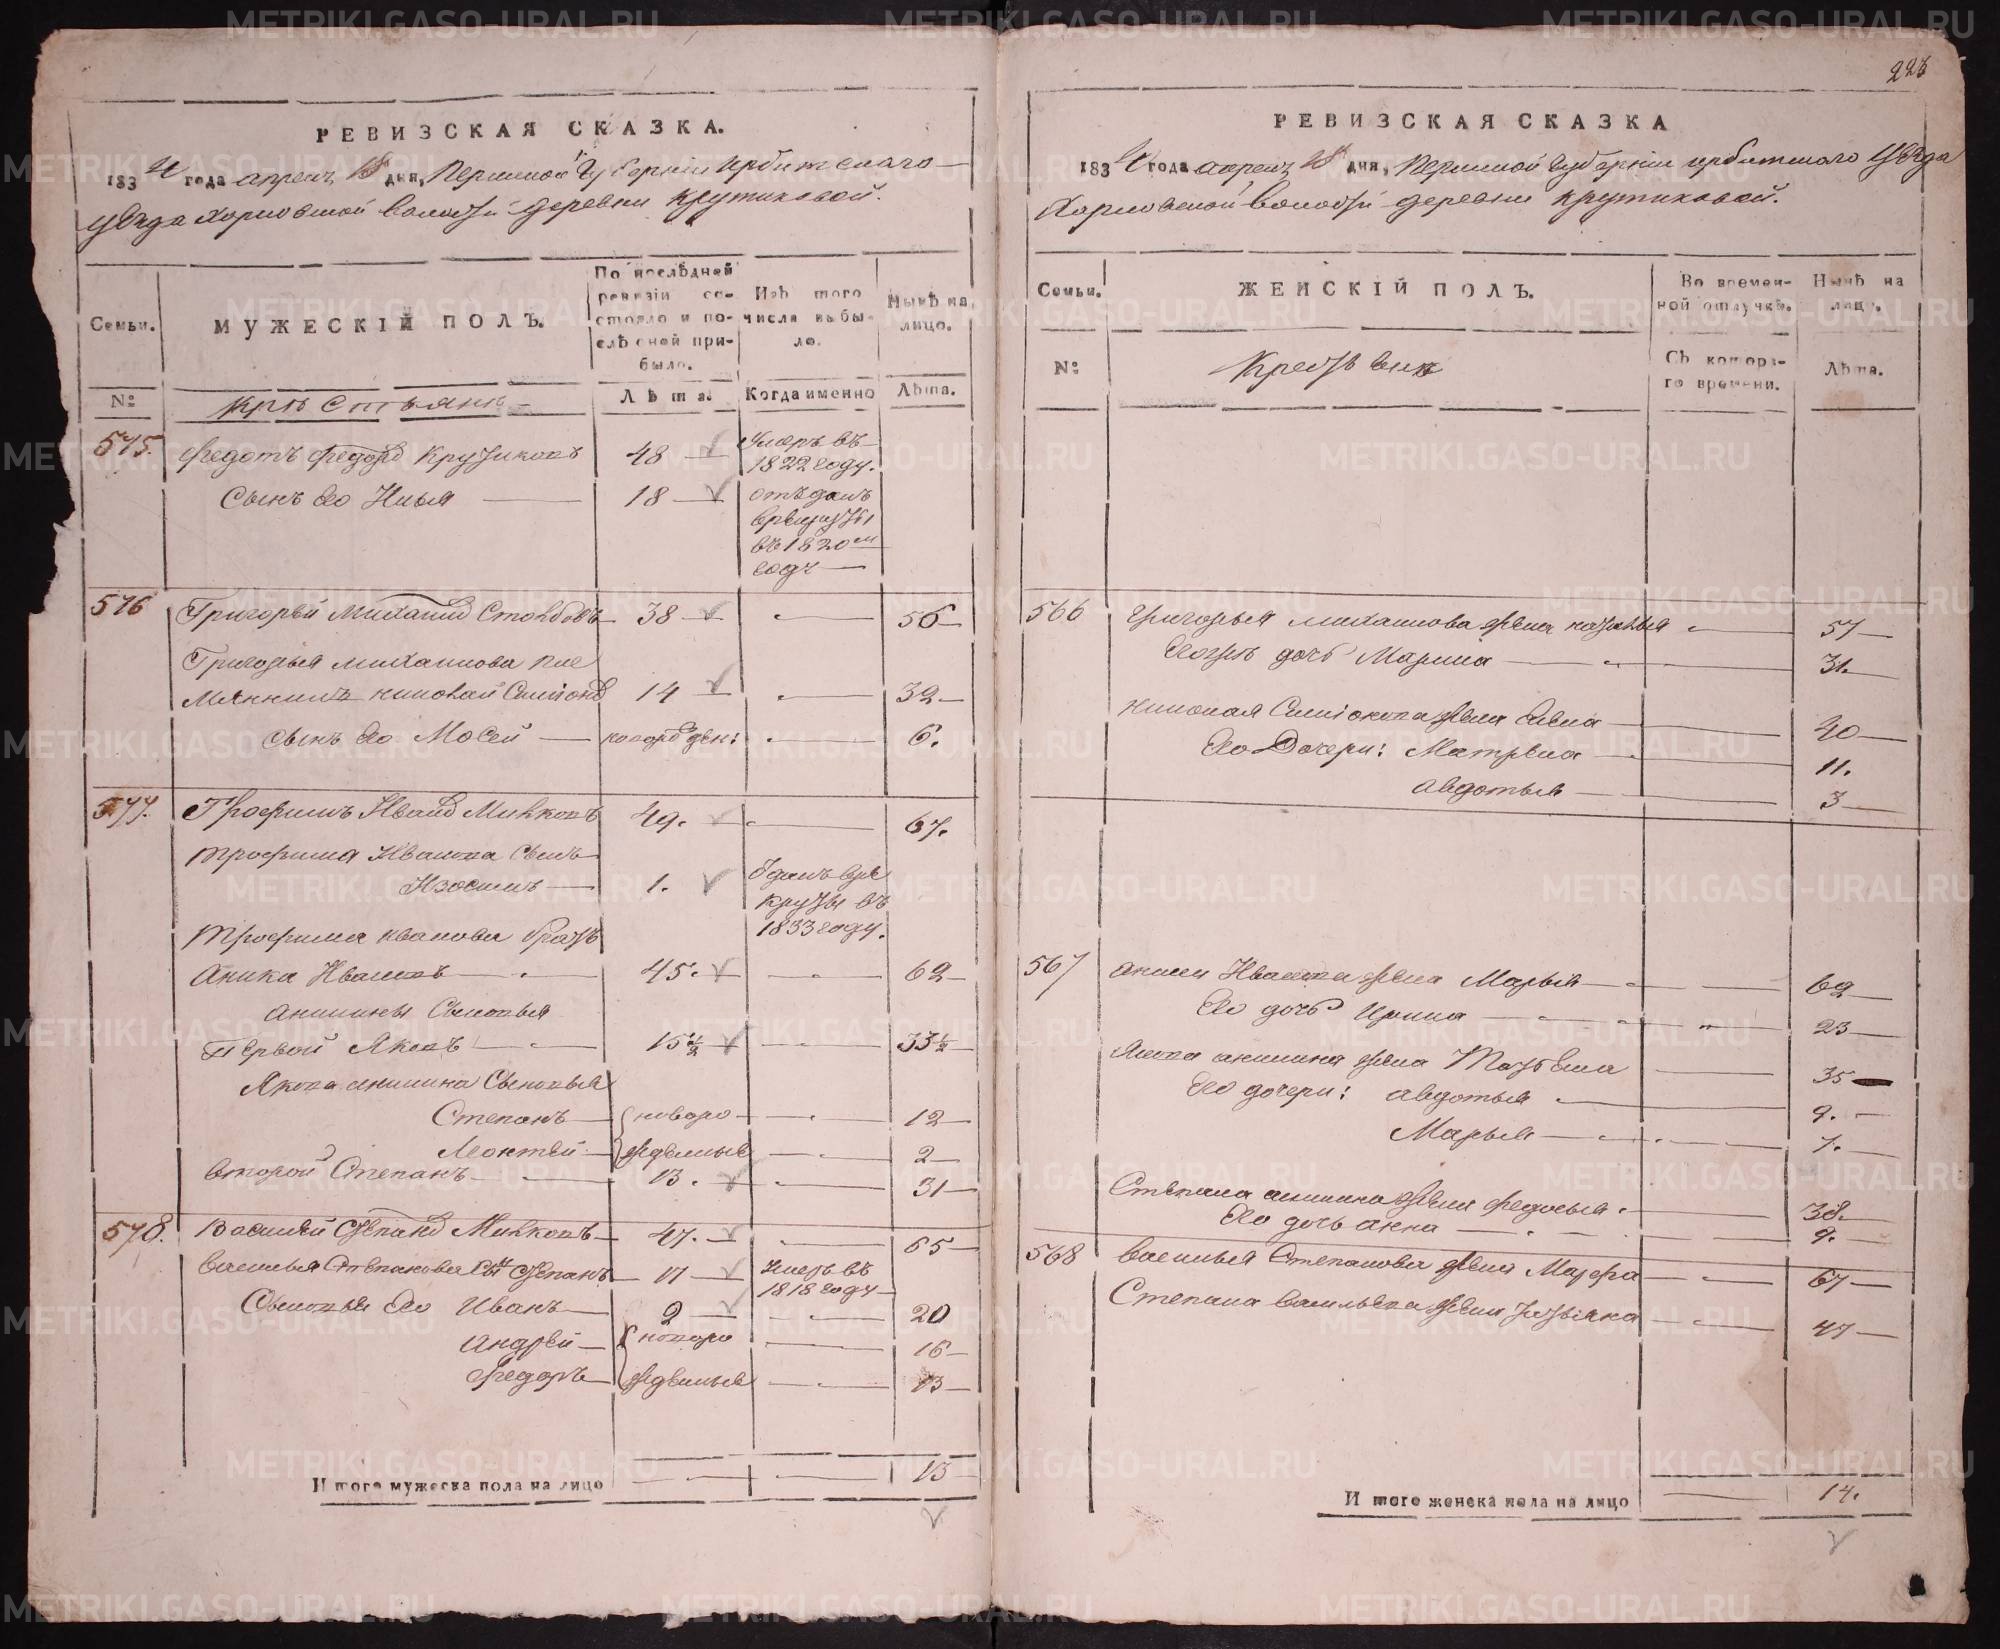 223
РЕВИЗСКАЯ СКАЗКА.
1834 года апреля 18 дня, Пермской Губерніи Ирбитскаго
уѣзда Харловской волости деревни Крутиковой.
Семьи.
МУЖЕСКІЙ ПОЛЪ.
По послѣдней ревизіи состояло и послѣ оной прибыло.
Изъ того числа выбыло.
Нынѣ на лицо.
№
Крестьяне
Лѣта.
Когда именно
Лѣта.
575. Федотъ Федоров Крутиковъ 48 Умеръ въ 1822 году.
Сынъ его Илья 18 отъданъ в рекруты въ 1820м году
576 Григорей Михайлов Столбовъ 38 56
Григорья Михайлова пле
мянникъ Николай 14 32
Сынъ его Мосей новорожден: 6.
577. Трофимъ Иванов Миньковъ 49. 67.
Трофима Иванова Сынъ
Изосимъ 1. Отданъ в рекруты въ 1833 году.
Трофима Иванова братъ
Аника Ивановъ 45. 62
Аникины Сыновья
Первой Яковъ 15½ 33½
Якова Аникина Сыновья
Степанъ новоро 12
Леонтей жденные 2
Второй Степанъ 13. 31
578. Василей Степанов Миньковъ 47. 65
Василья Степанова Сын Степанъ 17 Умеръ въ 1818 году
Сыновья его Иванъ 2 20
Андрей новоро 16
Федоръ жденные 13
Итого мужеска пола на лицо 13
РЕВИЗСКАЯ СКАЗКА
1834 года апреля 18 дня, Пермской Губерніи Ирбитскаго уѣзда
Харловской волости деревни Крутиковой.
Семьи.
ЖЕНСКІЙ ПОЛЪ.
Во временной отлучкѣ.
Нынѣ на лицо.
№
Крестьянк
Съ котораго времени.
Лѣта.
566 Григорья Михайлова жена Наталья 57
дочь Марина 31.
Николая жена 40
Его Дочери: Матрена 11.
Авдотья 3
567 Аники Иванова жена Марья 62
Его дочь Ирина 23
Якова Аникина жена Татьяна 35
Его дочери: Авдотья 9.
Марья 7.
Степана Аникина жена Федосья 38.
Его дочь Анна 9.
568 Василья Степанова жена Марфа 67
Степана Васильева жена Татьяна 47
Итого женска пола на лицо 14.
METRIKI.GASO-URAL.RU